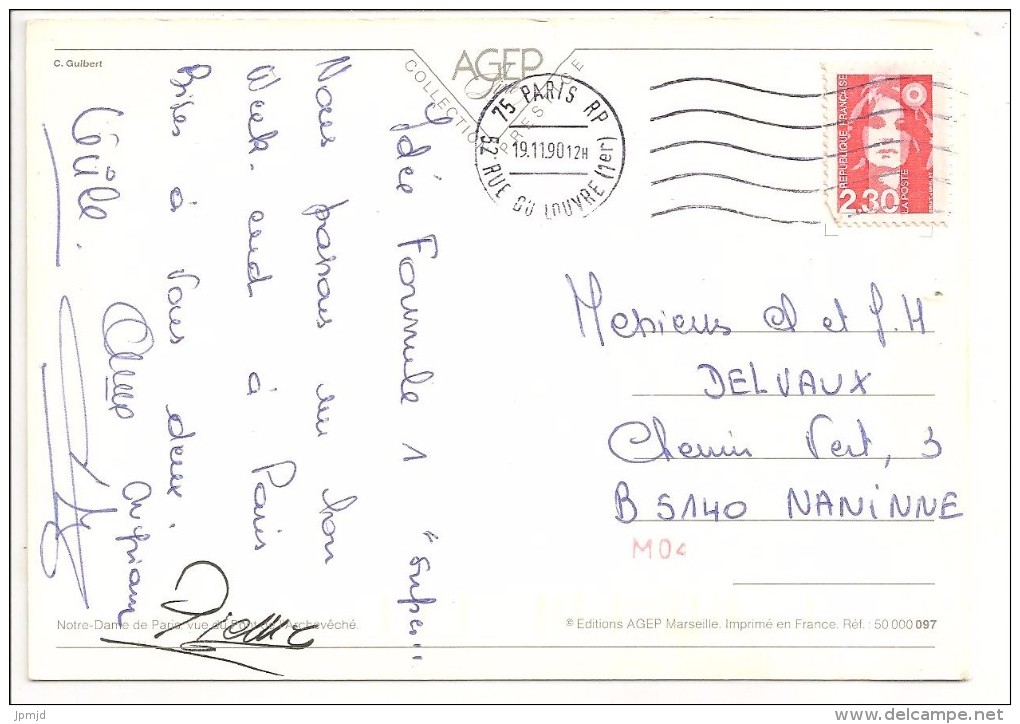 C. Guibert
AGEP
COLLECTION PRESTIGE
75 PARIS RP
19.11.90 12H
52. RUE DU LOUVRE (1er)
REPUBLIQUE FRANÇAISE
2.30
LA POSTE
Idée Formule 1 "super"
Nous passons un bon
Week-end à Paris
Bises à Vous deux.
DELVAUX
Chemin Vert, 3
B 5140 NANINNE
M04
Pierre
Notre-Dame de Paris, vue du Pont de l'Archevêché.
© Editions AGEP Marseille. Imprimé en France. Réf. : 50 000 097
jpmjd
www.delcampe.net